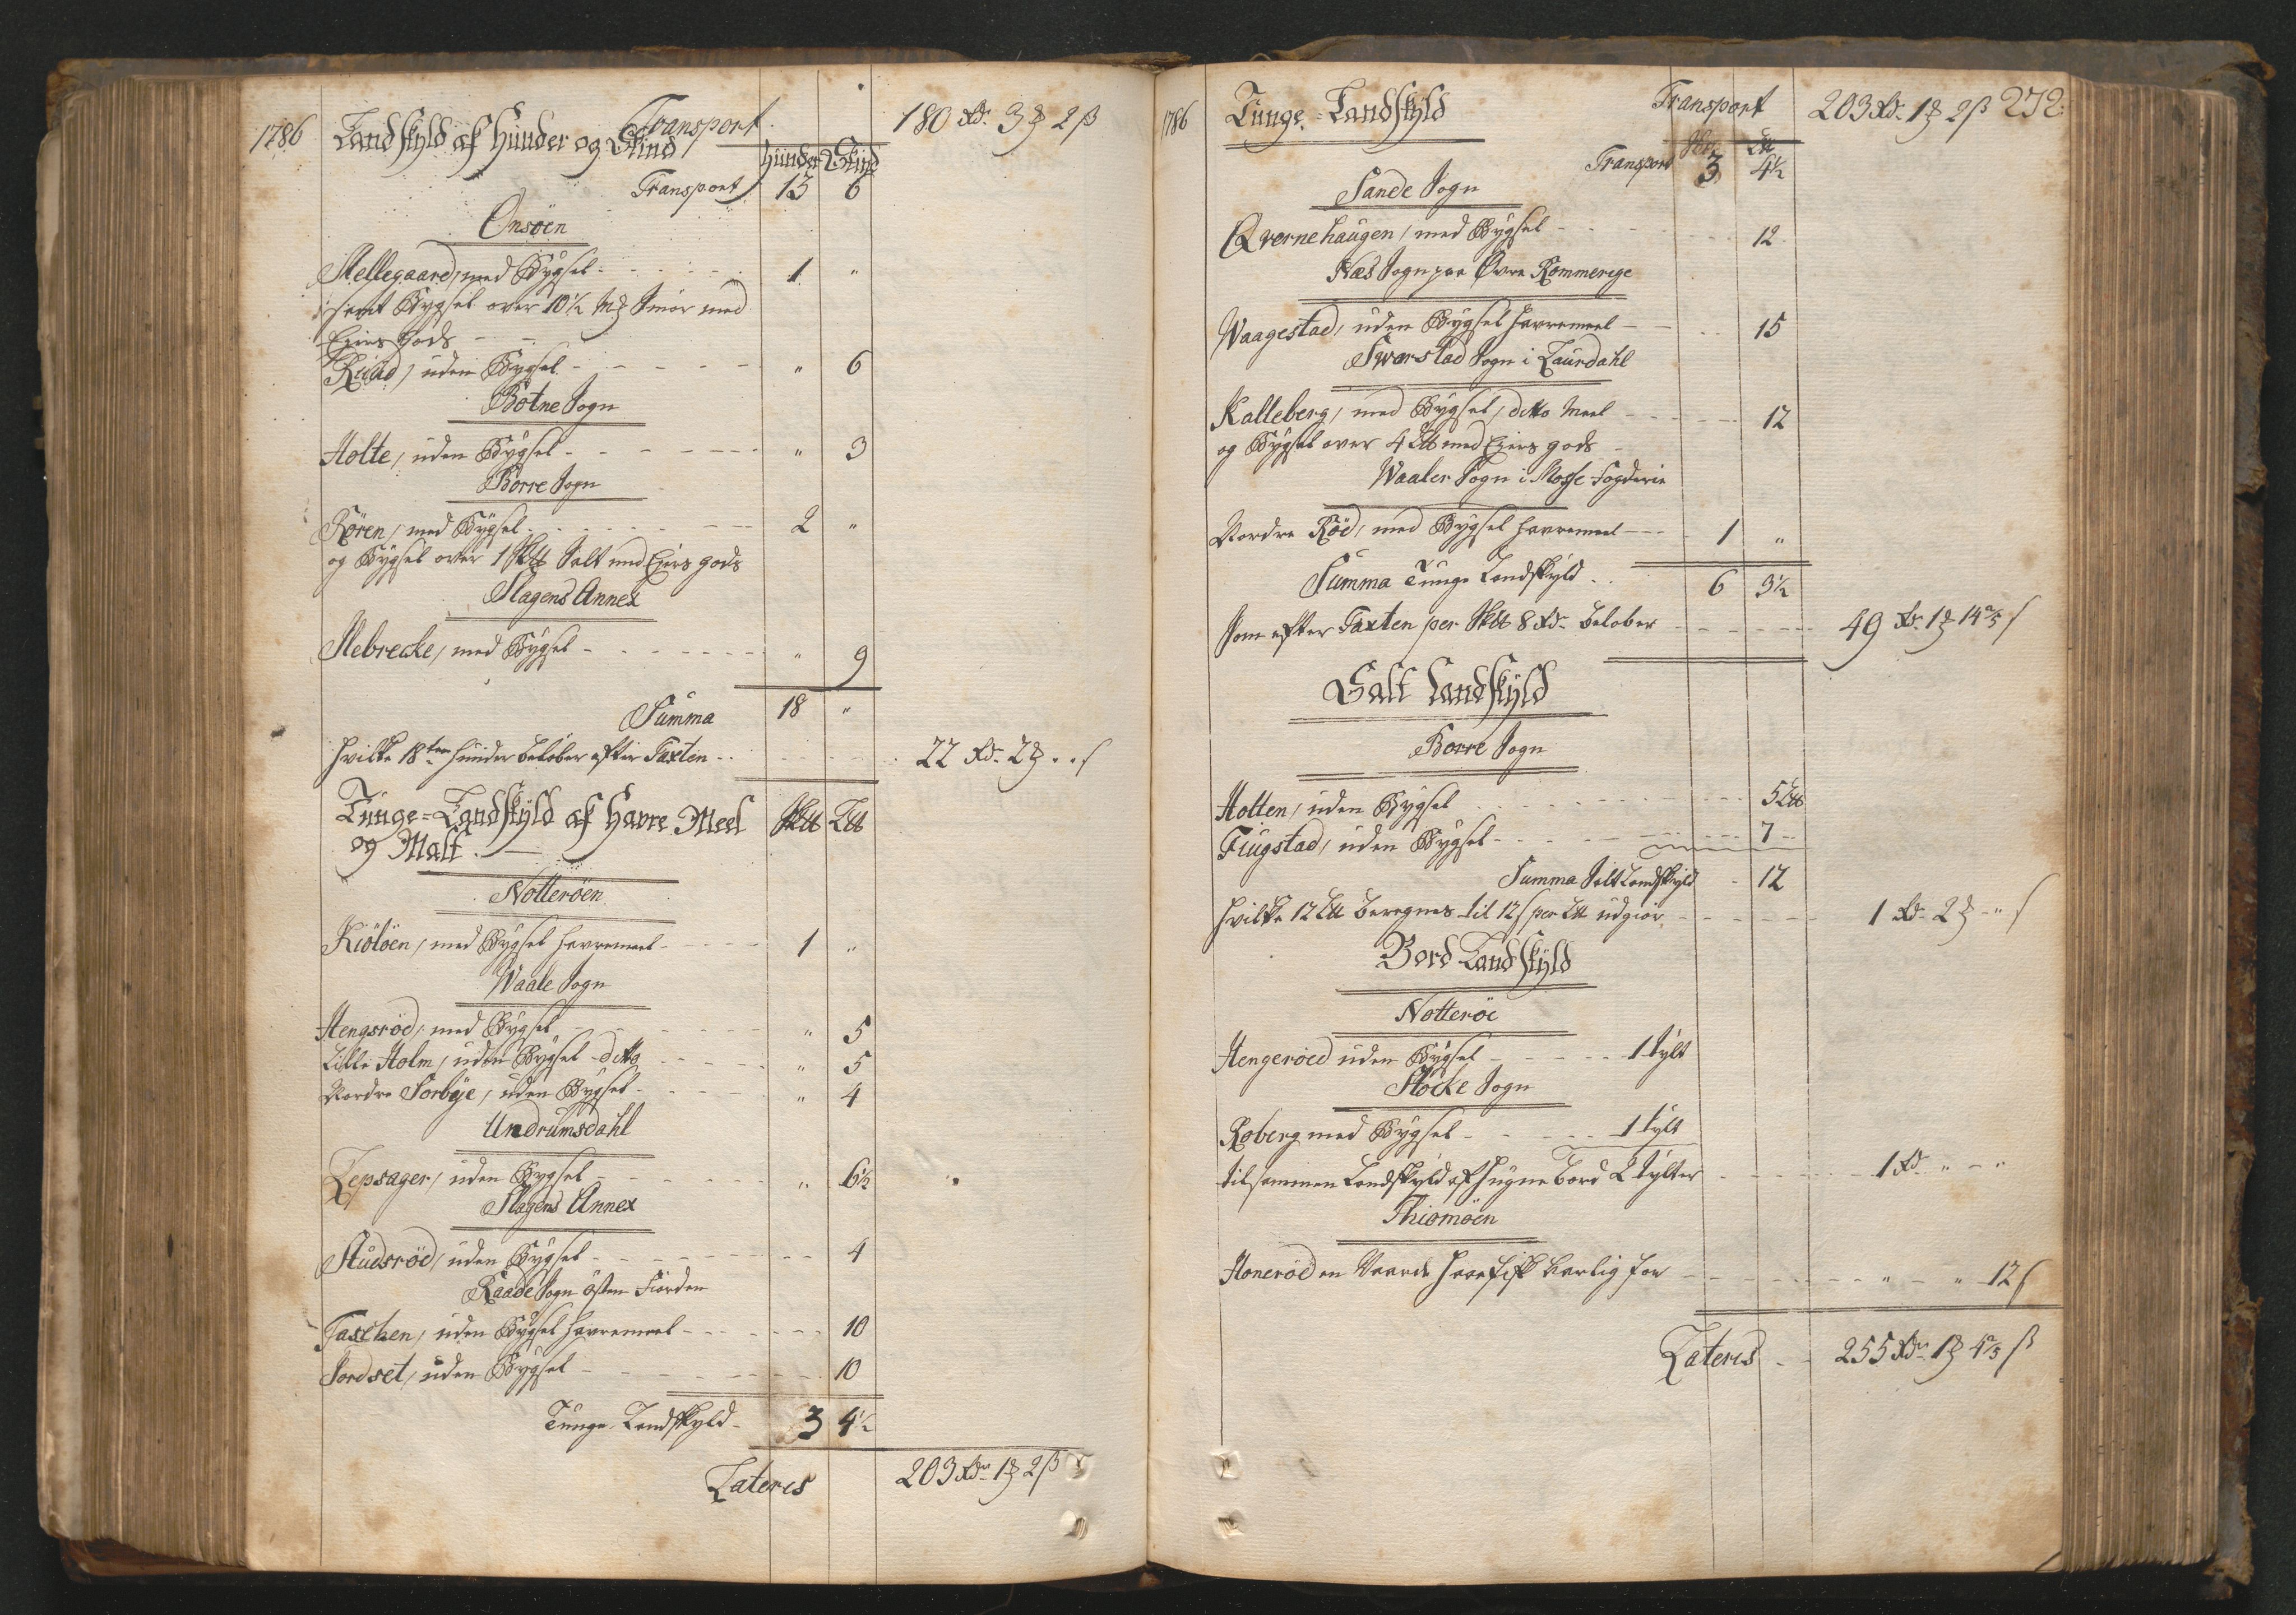 1786 Landskyld af Hunder og Skind Transport 180 Rdr 3 ƶ 2 ß
Hunder Skind
Transport 13 6
Onsöen
Mellegaard, med Bygsel - - - 1 "
samt Bygsel over 10½ Mƶ Smör med
Eiers Gods
Ruud, uden Bygsel - - - - " 6
Botne Sogn
Holte, uden Bygsel - - - - " 3
Borre Sogn
Rören, med Bygsel - - - - 2 "
og Bygsel over 1 Sk℔ Salt med Eiers gods
Slagens Annex
Slebrecke, med Bygsel - - - - " 9
Summa 18 "
hvilke 18ten Hunder beløber efter Taxten - - 22 Rdr 2 ƶ - - ß
Tunge-Landskyld af Havre Meel Sk℔ L℔
og Malt
Notteröen
Kiölöen, med Bygsel havremeel - - - 1 "
Waale Sogn
Hengsröd, med Bygsel - - - " 5
Lille Holm, uden Bygsel ditto - - - " 5
Nordre Sorbye, uden Bygsel - - - " 4
Undrumsdahl
Lepsager, uden Bygsel - - - " 6½
Slagens Annex
Studsröd, uden Bygsel - - - 4
Raade Sogn østen Fiorden
Taschen, uden Bygsel havremeel - - - 10
Jordset, uden Bygsel - - - 10
Tunge Landskyld - 3 4½
Lateris 203 Rdr 1 ƶ 2 ß
1786 Tunge-Landskyld Transport 203 Rdr 1 ƶ 2 ß 272.
Sk℔ L℔
Transport 3 4½
Sande Sogn
Qvernehaugen, med Bygsel - - - 12
Næs Sogn paa Øvre Rommerige
Waagestad, uden Bygsel havremeel - - 15
Swarstad Sogn i Laurdahl
Kalleberg, med Bygsel, ditto Meel - - - 12
og Bygsel over 4 L℔ med Eiers gods
Waaler Sogn i Mosse Fogderie
Nordre Röd, med Bygsel havremeel - - - 1 "
Summa Tunge Landskyld - - 6 3½
Som efter Taxten per Sk℔ 8 Rdr beløber - - - 49 Rdr 1 ƶ 14⅖ ß
Salt Landskyld
Borre Sogn
Holten, uden Bygsel - - - 5 L℔
Fiugstad, uden Bygsel - - - 7 -
Summa Salt Landskyld - 12
hvilke 12 L℔ beregnes til 12 ß per L℔ udgiør - - - 1 Rdr 2 ƶ - " ß
Bord Landskyld
Notteröe
Hengeröed uden Bygsel - - - 1 tylt
Stöcke Sogn
Roberg med Bygsel - - - 1 tylt
tilsammen Landskyld af Hugne bord 2 tylter - - - 1 Rd " - "
Thiomöen
Honeröd en Vaarde havefisk aarlig for - - - " - " 12 ß
Lateris - - 255 Rdr 1 ƶ 4⅖ ß